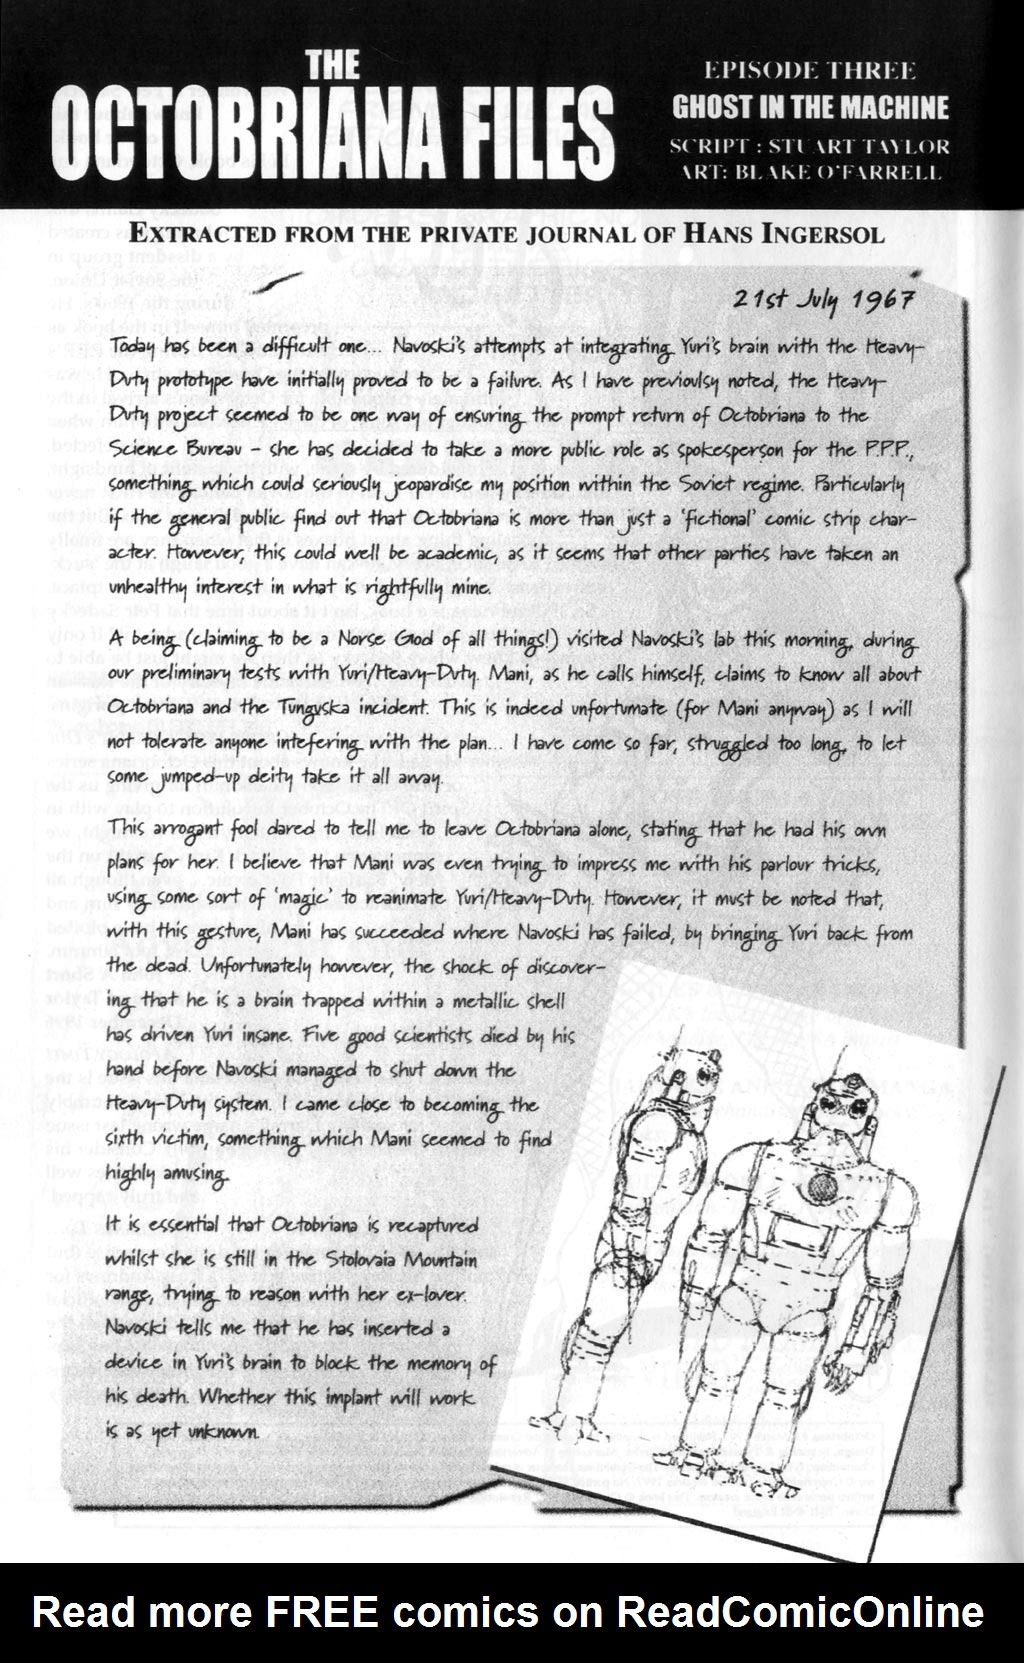 THE
OCTOBRIANA FILES
EPISODE THREE
GHOST IN THE MACHINE
SCRIPT : STUART TAYLOR
ART: BLAKE O'FARRELL
EXTRACTED FROM THE PRIVATE JOURNAL OF HANS INGERSOL
21st July 1967
Today has been a difficult one... Navoski's attempts at integrating Yuri's brain with the Heavy-
Duty prototype have initially proved to be a failure. As I have previoulsy noted, the Heavy-
Duty project seemed to be one way of ensuring the prompt return of Octobriana to the
Science Bureau - she has decided to take a more public role as spokesperson for the P.P.P.,
something which could seriously jeopardise my position within the Soviet regime. Particularly
if the general public find out that Octobriana is more than just a 'fictional' comic strip char-
acter. However, this could well be academic, as it seems that other parties have taken an
unhealthy interest in what is rightfully mine.
A being (claiming to be a Norse God of all things!) visited Navoski's lab this morning, during
our preliminary tests with Yuri/Heavy-Duty. Mani, as he calls himself, claims to know all about
Octobriana and the Tunguska incident. This is indeed unfortunate (for Mani anyway) as I will
not tolerate anyone intefering with the plan... I have come so far, struggled too long, to let
some jumped-up deity take it all away.
This arrogant fool dared to tell me to leave Octobriana alone, stating that he had his own
plans for her. I believe that Mani was even trying to impress me with his parlour tricks,
using some sort of 'magic' to reanimate Yuri/Heavy-Duty. However, it must be noted that,
with this gesture, Mani has succeeded where Navoski has failed, by bringing Yuri back from
the dead. Unfortunately however, the shock of discover-
ing that he is a brain trapped within a metallic shell
has driven Yuri insane. Five good scientists died by his
hand before Navoski managed to shut down the
Heavy-Duty system. I came close to becoming the
sixth victim, something which Mani seemed to find
highly amusing.
It is essential that Octobriana is recaptured
whilst she is still in the Stolovaia Mountain
range, trying to reason with her ex-lover.
Navoski tells me that he has inserted a
device in Yuri's brain to block the memory of
his death. Whether this implant will work
is as yet unknown.
Read more FREE comics on ReadComicOnline